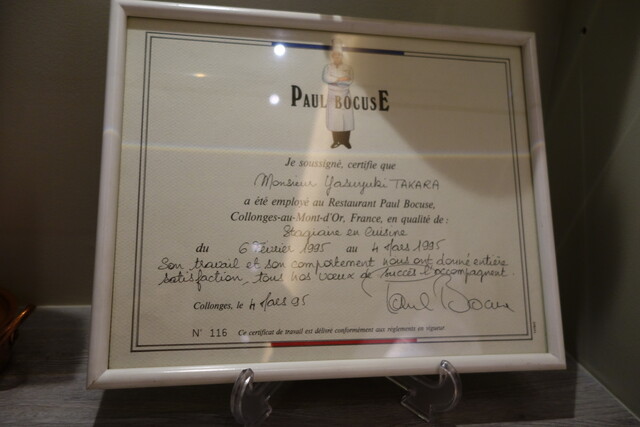 PAUL BOCUSE
Je soussigné, certifie que
Monsieur Yasuyuki TAKARA
a été employé au Restaurant Paul Bocuse,
Collonges-au-Mont-d'Or, France, en qualité de :
Stagiaire en Cuisine
du 6 Février 1995 au 4 Mars 1995
Son travail et son comportement nous ont donné entière
satisfaction, tous nos vœux de succès l'accompagnent.
Collonges, le 4 Mars 95
Paul Bocuse
N° 116 Ce certificat de travail est délivré conformément aux règlements en vigueur